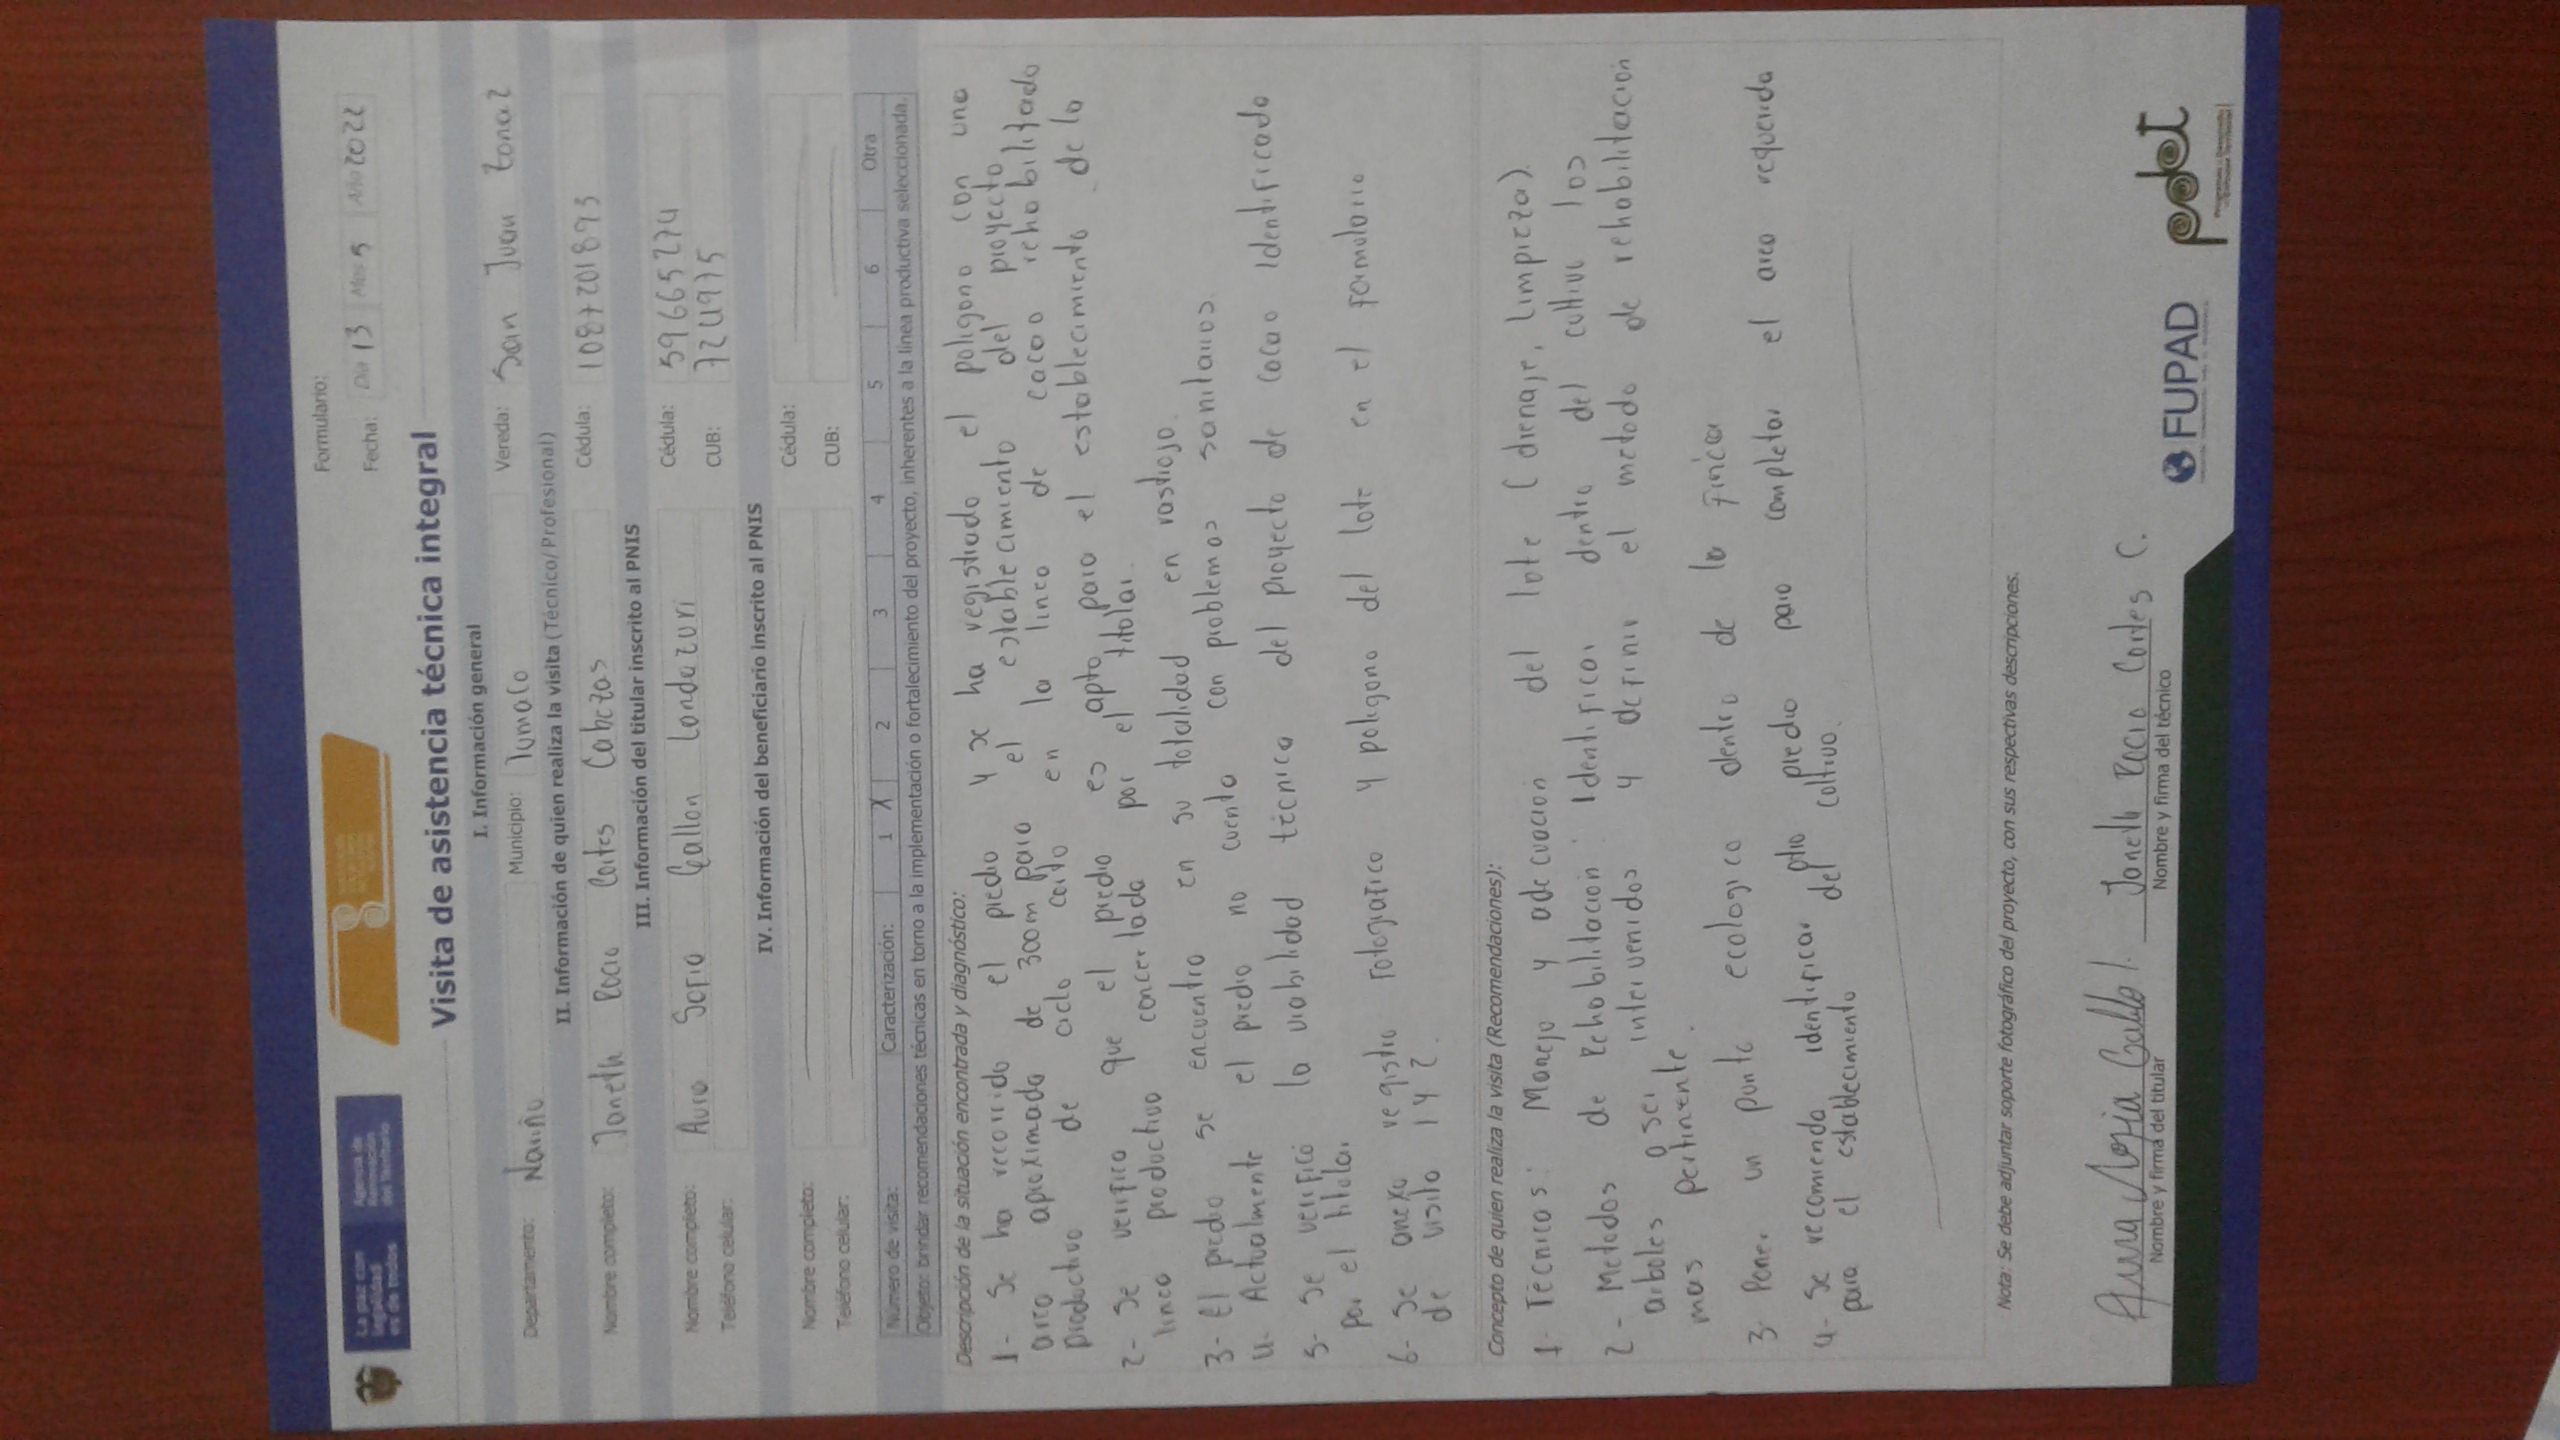 La paz con legalidad es de todos
Agencia de Renovación del Territorio
Formulario:
Fecha: Día 13 Mes 5 Año 2022
Visita de asistencia técnica integral
I. Información general
Departamento: Nariño Municipio: Tumaco Vereda: San Juan Zonal
II. Información de quien realiza la visita (Técnico/Profesional)
Nombre completo: Janeth Rocio Cortes Cabezas Cédula: 1087201893
III. Información del titular inscrito al PNIS
Nombre completo: Aura Sofia Gallon Londazuri Cédula: 59665274
Teléfono celular: CUB: 724975
IV. Información del beneficiario inscrito al PNIS
Nombre completo: Cédula:
Teléfono celular: CUB:
Número de visita: Caracterización: 1 X 2 3 4 5 6 Otra
Objeto: brindar recomendaciones técnicas en torno a la implementación o fortalecimiento del proyecto, inherentes a la línea productiva seleccionada.
Descripción de la situación encontrada y diagnóstico:
1- Se ha recorrido el predio y se ha registrado el poligono con una
area aproximada de 300m para el establecimiento del proyecto
productivo de ciclo corto en la linea de cacao rehabilitado
2- Se verifico que el predio es apto para el establecimiento de la
linea productiva concertada por el titular.
3- El predio se encuentra en su totalidad en rastrojo.
4. Actualmente el predio no cuenta con problemas sanitarios.
5- Se verificó la viabilidad técnica del proyecto de cacao identificado
por el titular
6- Se anexa registro fotografico y poligono del lote en el formulario
de visita 1 y 2.
Concepto de quien realiza la visita (Recomendaciones):
1- Técnicos: Manejo y adecuación del lote (drenaje, limpieza).
2- Metodos de Rehabilitación: Identificar dentro del cultivo los
arboles a ser intervenidos y definir el metodo de rehabilitación
mas pertinente.
3- Poner un punto ecologico dentro de la finca
4- Se recomienda identificar otro predio para completar el area requerida
para el establecimiento del cultivo.
Nota: Se debe adjuntar soporte fotográfico del proyecto, con sus respectivas descripciones.
Aura Sofia Gallo L. Janeth Rocio Cortes C.
Nombre y firma del titular Nombre y firma del técnico
FUPAD
pdet